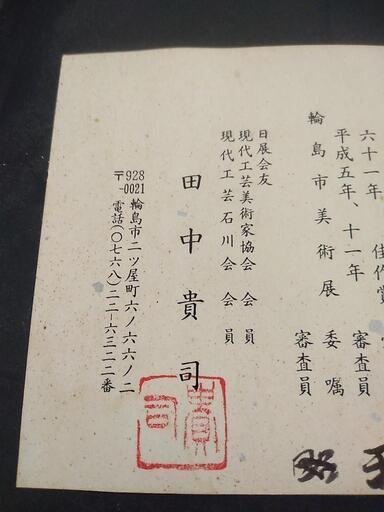 六十一年 佳作賞
平成五年、十一年 審査員
輪島市美術展 委嘱 審査員
日展会友
現代工芸美術家協会会員
現代工芸石川会会員
田中貴司
〒928-0021 輪島市二ツ屋町六ノ六六ノ二
電話(〇七六八)二二-六三二二番
貴司